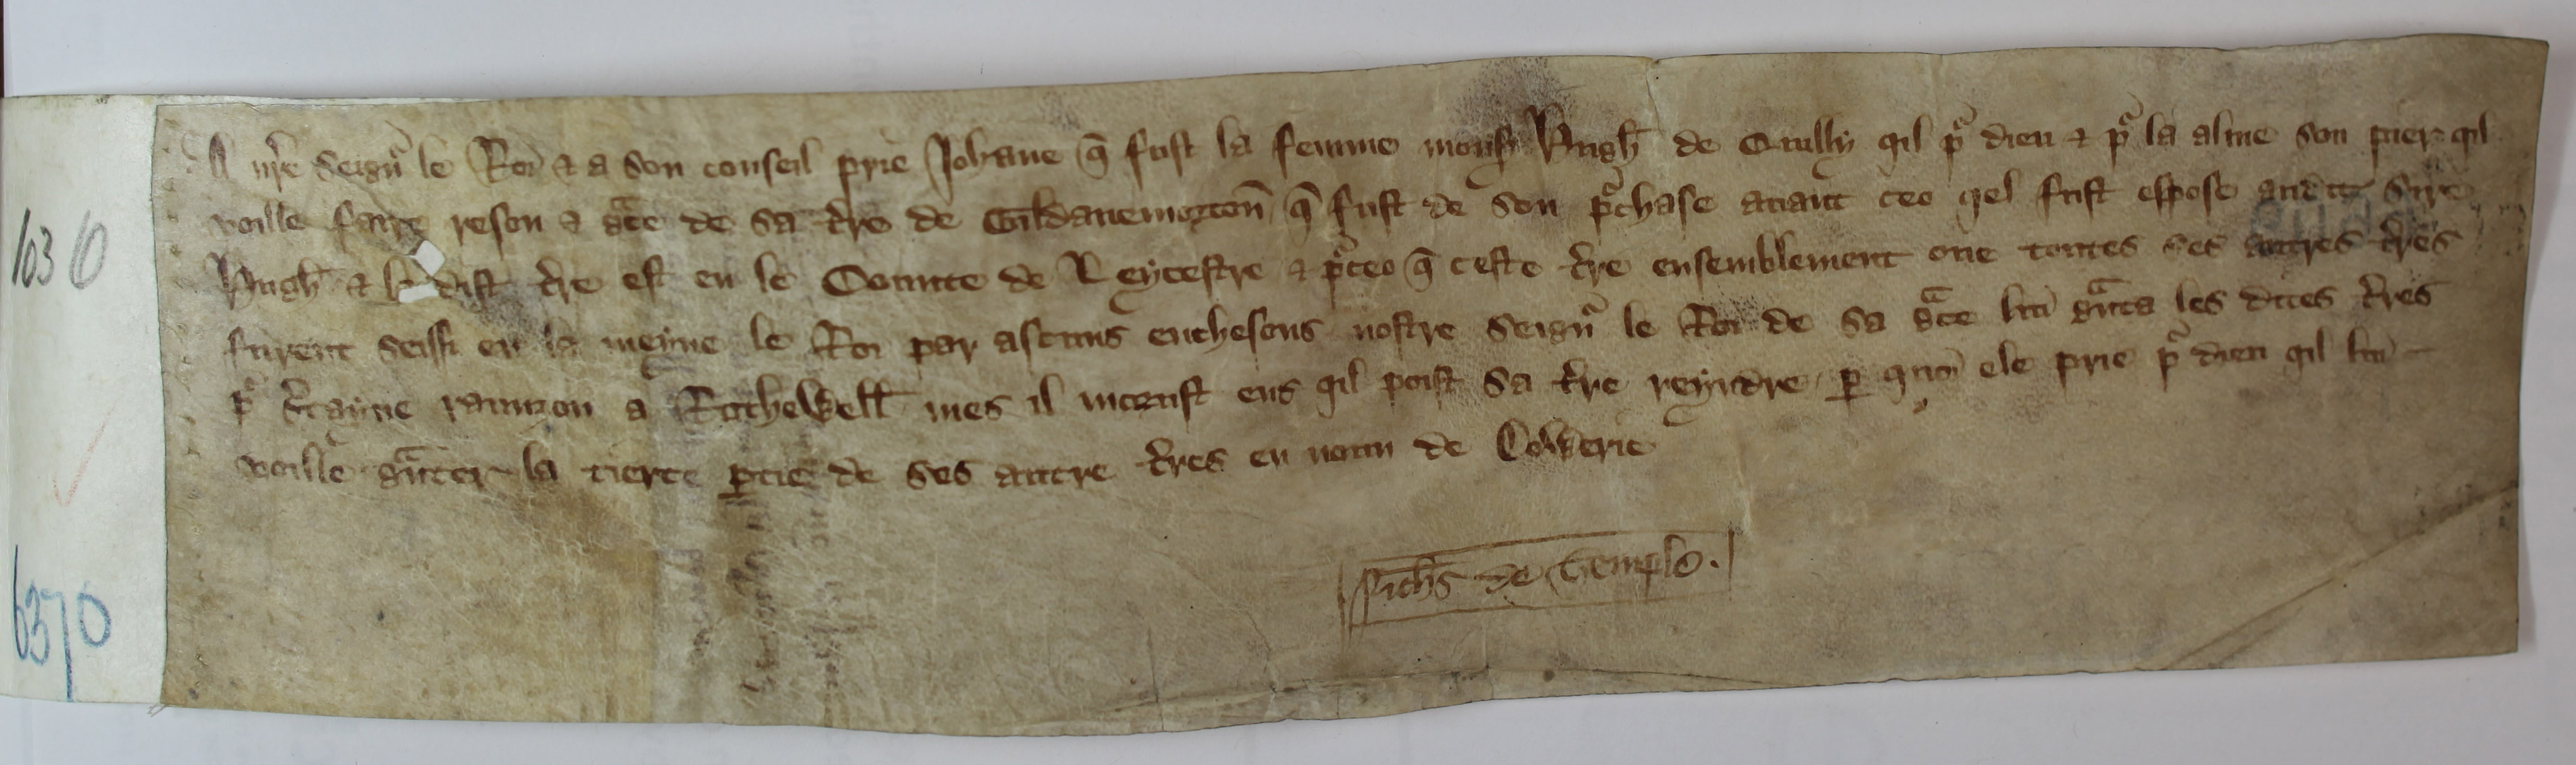 A nr̄e seignr̉ le Roi & a son conseil prie Johane q̄ fust la femme monsr Hugh̄ de Cuilly qil pr̉ dieu & pr̉ la alme son pier qil
voille faire reson & gᵃce de sa t̉re de Gildanemorton̄ q̄ fust de son pr̉chase auant ceo qel fust espose audit Sire
Hugh̄ & la dist t̉re est en le Counte de Leycestre & pr̉ceo q̄ ceste t̉re ensemblement oue toutes ses autres t̉res
furent seisi en la meyne le Roi par ascuns enchesons nostre Seignr̉ le Roi de sa gᵃce lui gᵃnta les dites t̉res
pr̉ c̉tayne raunzon a Rothewell̄ mes il morust ens qil poist sa t̉re reyndre p̱ quoi ele prie pr̉ dieu qil lui
voille gᵃnter la tierce p̱tie de ses autre t̉res en noun de Dowerie
Nich̄s de Templo.
103 10
6370